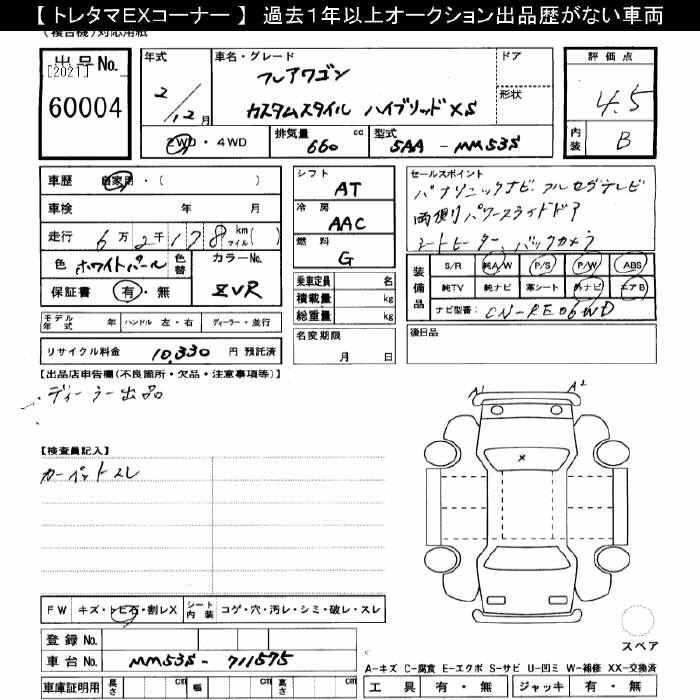 【 トレタマEXコーナー 】 過去１年以上オークション出品歴がない車両
(複合機)対応用紙
出品No.
[2021]
60004
年式
2/12月
車名・グレード
フレアワゴン
カスタムスタイル ハイブリッドXS
ドア
形状
2WD・4WD
排気量 660 cc
型式 5AA - MM53S
評価点
4.5
内装 B
車歴 自家用・( )
車検 年 月
走行 6万2千178 km マイル( )
色 ホワイトパール 色替
カラーNo. ZVR
保証書 有・無
モデル年式 年 ハンドル 左・右 ディーラー・並行
リサイクル料金 10,330 円 預託済
シフト AT
冷房 AAC
燃料 G
乗車定員 名
積載量 kg
総重量 kg
名変期限
月 日
セールスポイント
パナソニックナビ フルセグテレビ
両側パワースライドドア
シートヒーター、バックカメラ
装備品
S/R 純A/W P/S P/W ABS
純TV 純ナビ 革シート 外ナビ エアB
ナビ型番: CN-RE06WD
後日品
【出品店申告欄(不良箇所・欠品・注意事項等)】
ディーラー出品
【検査員記入】
カーペットスレ
A1 A2
X
FW キズ・トビ石・割レX シート内装 コゲ・穴・汚レ・シミ・破レ・スレ
登録No.
車台No. MM53S-711575
車庫証明用 長さ cm 幅 cm 高さ cm
スペア
A-キズ C-腐食 E-エクボ S-サビ U-凹ミ W-補修 XX-交換済
工具 有・無 ジャッキ 有・無